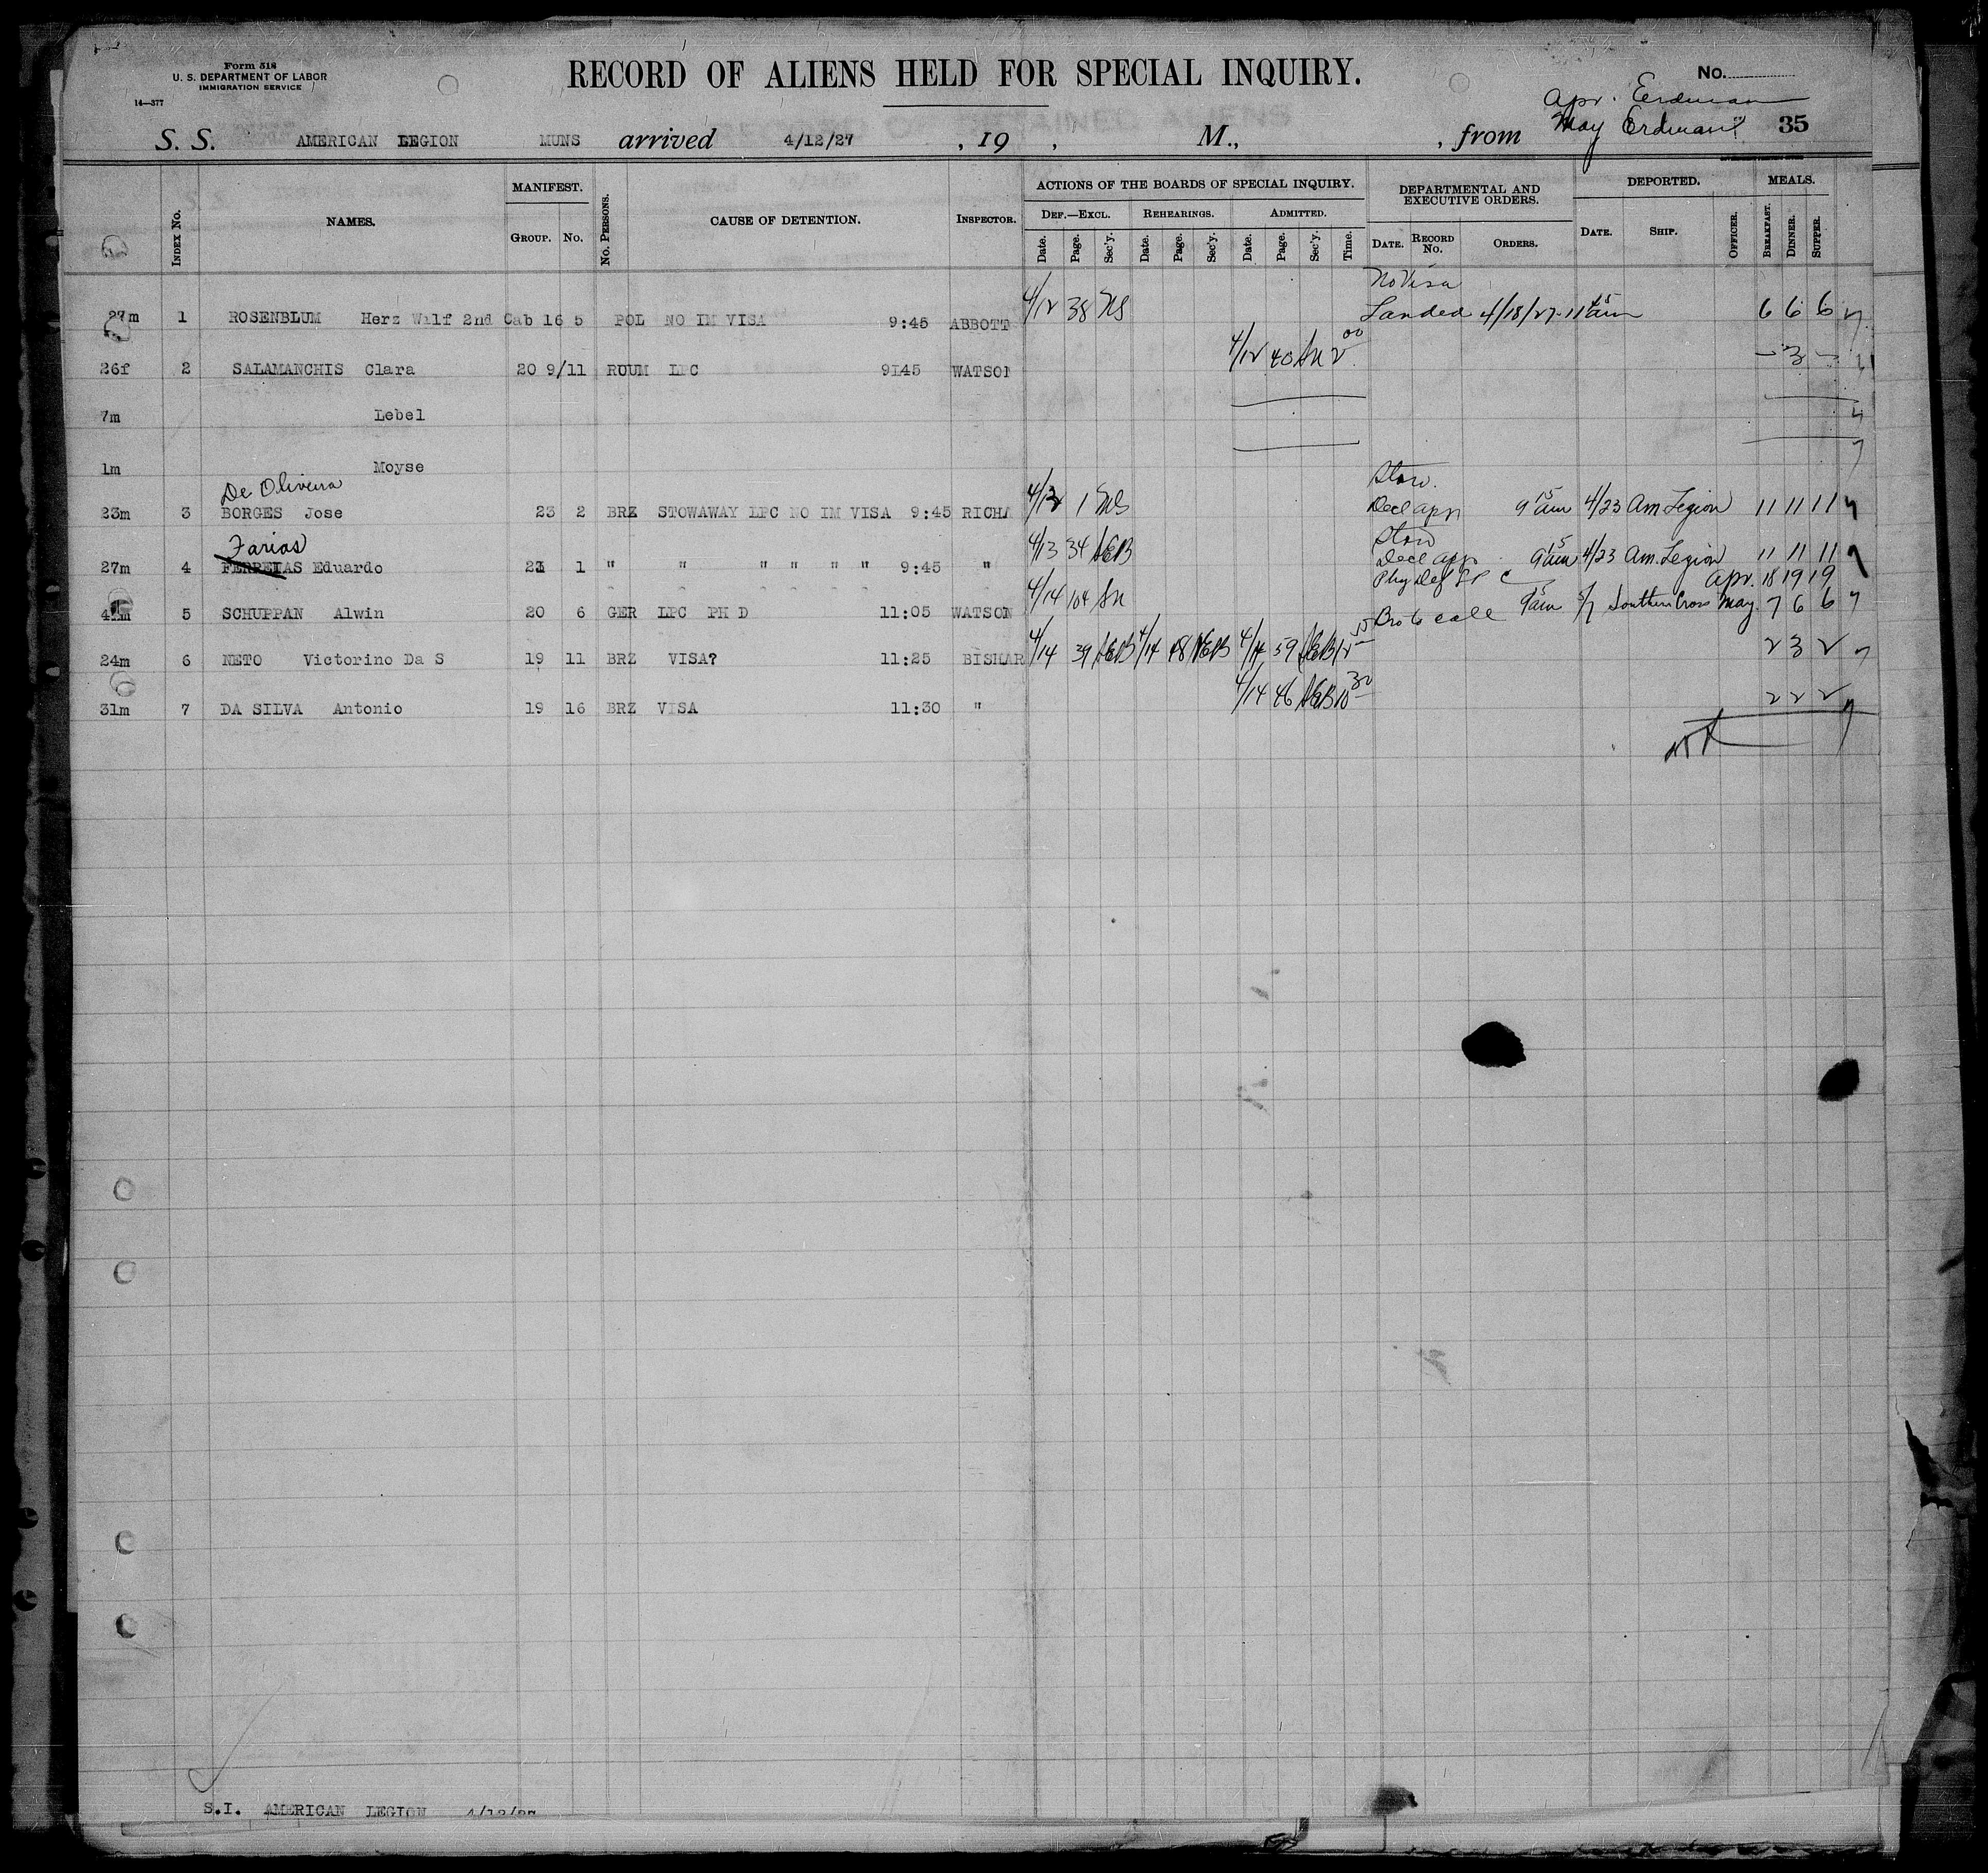 Form 518
U. S. DEPARTMENT OF LABOR
IMMIGRATION SERVICE
14—377
RECORD OF ALIENS HELD FOR SPECIAL INQUIRY.
No.
Apr. Erdman
May Erdman
35
S. S. AMERICAN LEGION MUNS arrived 4/12/27 , 19 , M., , from
INDEX No. NAMES. MANIFEST. GROUP. No. No. PERSONS. CAUSE OF DETENTION. INSPECTOR.
ACTIONS OF THE BOARDS OF SPECIAL INQUIRY.
DEF.—EXCL. REHEARINGS. ADMITTED.
Date. Page. Sec'y. Date. Page. Sec'y. Date. Page. Sec'y. Time.
DEPARTMENTAL AND EXECUTIVE ORDERS.
DATE. RECORD No. ORDERS.
DEPORTED.
DATE. SHIP. OFFICER.
MEALS.
BREAKFAST. DINNER. SUPPER.
No Visa
27m 1 ROSENBLUM Herz Wilf 2nd Cab 16 5 POL NO IM VISA 9:45 ABBOTT 4/12 38 Landed 4/18/27 11 15 am 6 6 6
26f 2 SALAMANCHIS Clara 20 9/11 ROUM LPC 9:45 WATSON 4/12 40 2 00 – 3 –
7m Lebel
1m Moyse
De Oliveira
Stow.
23m 3 BORGES Jose 23 2 BRZ STOWAWAY LPC NO IM VISA 9:45 RICHA 4/13 1 9 15 am 4/23 Am Legion 11 11 11
Farias
Stow
27m 4 FERREIAS Eduardo 23 1 " " " " " " 9:45 " 4/13 34 AEB 9 15 am 4/23 Am. Legion 11 11 11
Apr. 18 19 19
SCHUPPAN Alwin 5 20 6 GER LPC PH D 11:05 WATSON 4/14 104 9 am 5/7 Southern Cross May. 7 6 6
24m 6 NETO Victorino Da S 19 11 BRZ VISA? 11:25 BISHAR 4/14 39 AEB 4/14 48 AEB 4/14 59 AEB 2 3 2
31m 7 DA SILVA Antonio 19 16 BRZ VISA 11:30 " 4/14 46 AEB 10 30 2 2 2
S.I. AMERICAN LEGION 4/12/27